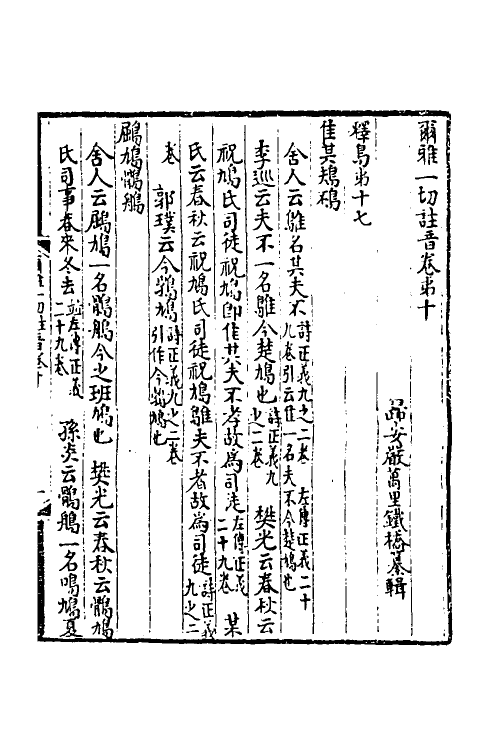 爾雅一切註音卷第十
歸安嚴萬里鐵橋纂輯
釋鳥第十七
隹其鳺鴀
舍人云鵻名其夫不詩正義九之二卷左傳正義二十九卷引云隹一名夫不今楚鳩也
李巡云夫不一名鵻今楚鳩也詩正義九之二卷 樊光云春秋云
祝鳩氏司徒祝鳩即隹其夫不孝故為司徒左傳正義二十九卷 某
氏云春秋云祝鳩氏司徒祝鳩鵻夫不者故為司徒詩正義九之二
卷 郭璞云今鵓鳩詩正義九之二卷引作今鶉鳩也
鶌鳩鶻鵃
舍人云鶌鳩一名鶻鵃今之班鳩也 樊光云春秋云鶻鳩
氏司事春來冬去並左傳正義二十九卷 孫炎云鶻鵃一名鳴鳩夏
爾雅一切註音卷十
一